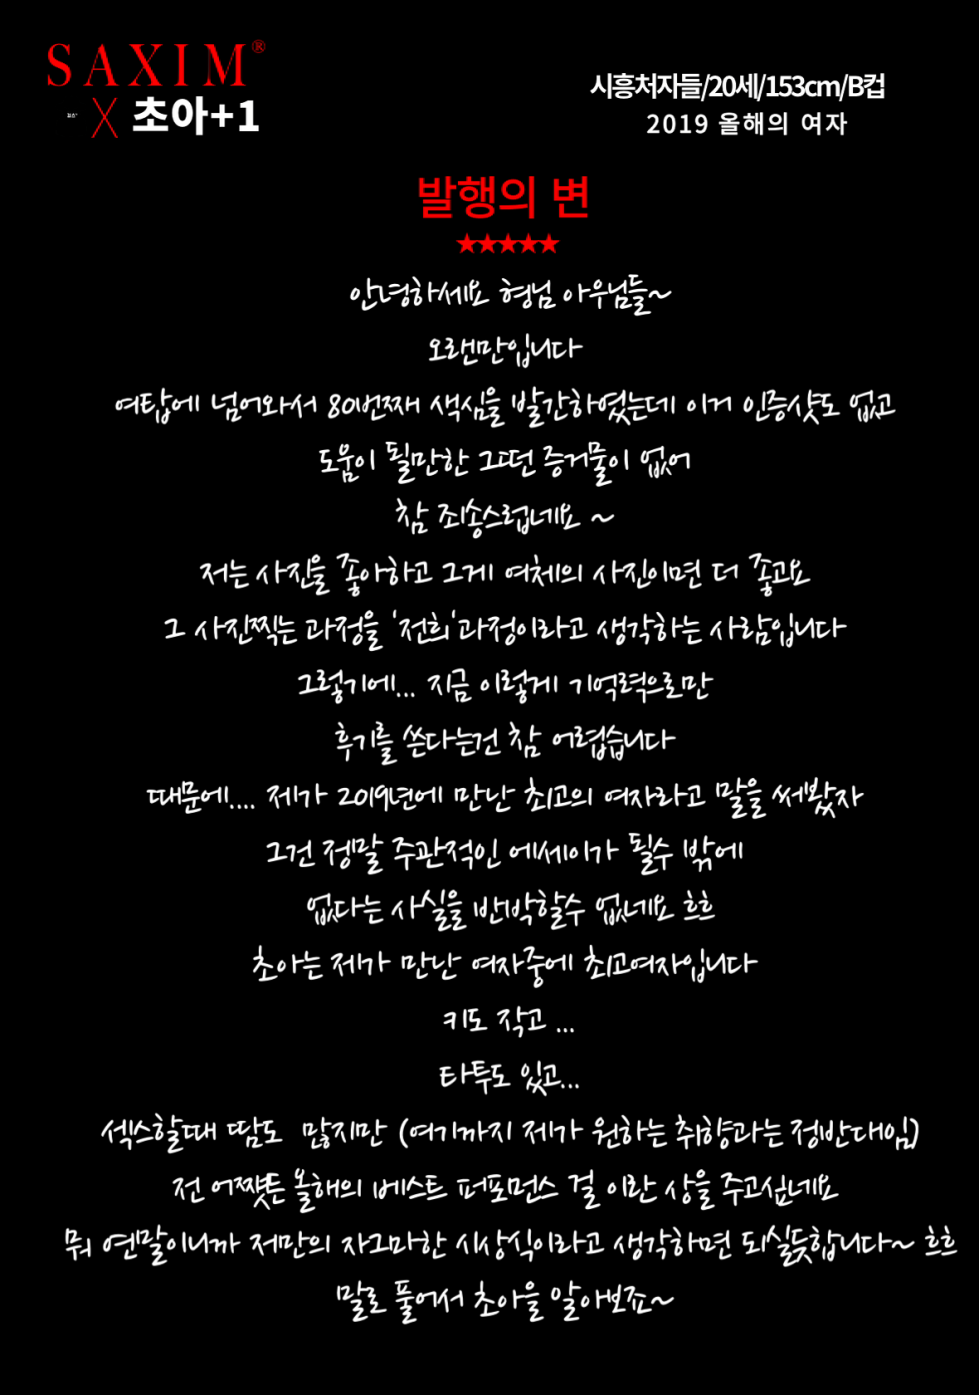 SAXIM®
X 초아+1
시흥처자들/20세/153cm/B컵
2019 올해의 여자
발행의 변
★★★★★
안녕하세요 형님 아우님들~
오랜만입니다
여탑에 넘어와서 80번째 색심을 발간하였는데 이거 인증샷도 없고
도움이 될만한 그떤 증거물이 없어
참 죄송스럽네요 ~
저는 사진을 좋아하고 그게 여체의 사진이면 더 좋고요
그 사진찍는 과정을 '전희'과정이라고 생각하는 사람입니다
그렇기에... 지금 이렇게 기억력으로만
후기를 쓴다는건 참 어렵습니다
때문에.... 제가 2019년에 만난 최고의 여자라고 말을 써봤자
그건 정말 주관적인 에세이가 될수 밖에
없다는 사실을 반박할수 없네요 흐흐
초아는 제가 만난 여자중에 최고여자입니다
키도 작고 ...
타투도 있고...
섹스할때 땀도 많지만 (여기까지 제가 원하는 취향과는 정반대임)
전 어쨋든 올해의 베스트 퍼포먼스 걸 이란 상을 주고싶네요
뭐 연말이니까 제만의 자그마한 시상식이라고 생각하면 되실듯합니다~ 흐흐
말로 풀어서 초아을 알아보죠~